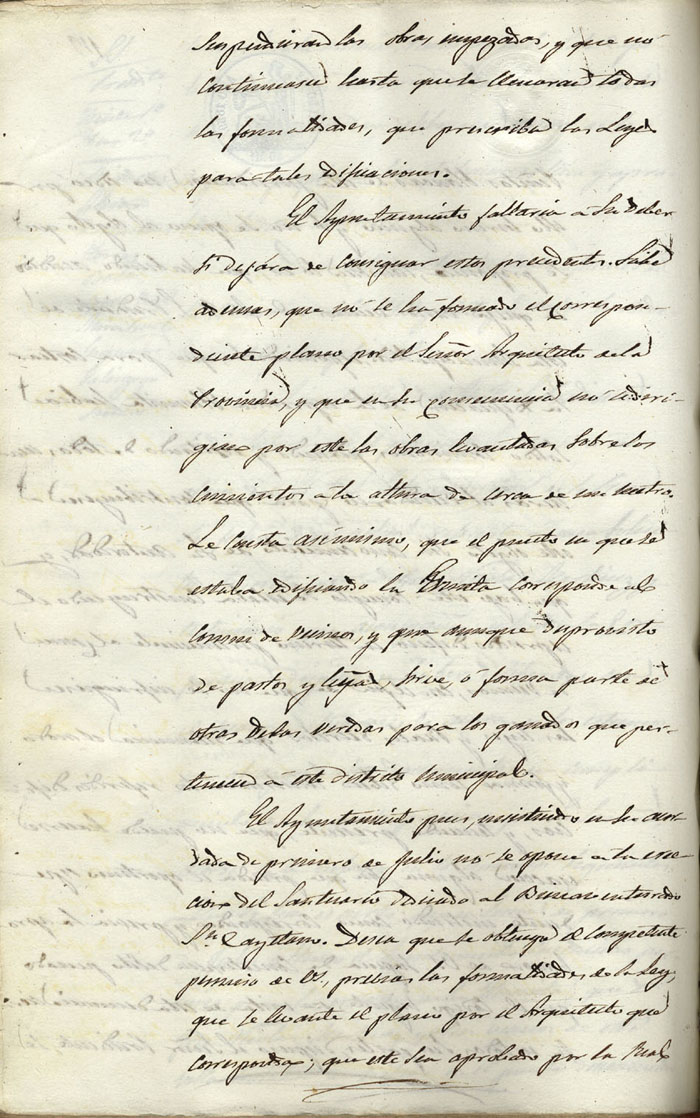 suspendieran las obras empezadas, y que no
continuasen hasta que se llenaran todas
las formalidades, que prescriben las Leyes
para tales edificaciones.
El Ayuntamiento faltaria a su deber
si dejára de consignar estos precedentes. Sabe
ademas, que no se ha formado el correspon-
diente plano por el Señor Arquitecto de la
Provincia, y que en su consecuencia no se diri-
gian por este las obras levantadas sobre los
cimientos a la altura de cerca de un metro.
Le consta asimismo, que el punto en que se
estaba edificando la Ermita corresponde al
comun de vecinos, y que aunque desprovisto
de pastos y leñas, sirve, ó forma parte de
otras de las veredas para los ganados que per-
tenecen á este distrito municipal.
El Ayuntamiento pues, insistiendo en su acor-
dada de primero de Julio no se opone a la erec-
cion del Santuario dedicado al Bienaventurado
Sn. Cayetano. Desea que se obtenga el competente
permiso de VS, previas las formalidades de la Ley,
que se levante el plano por el Arquitecto que
corresponda; que este sea aprobado por la Real